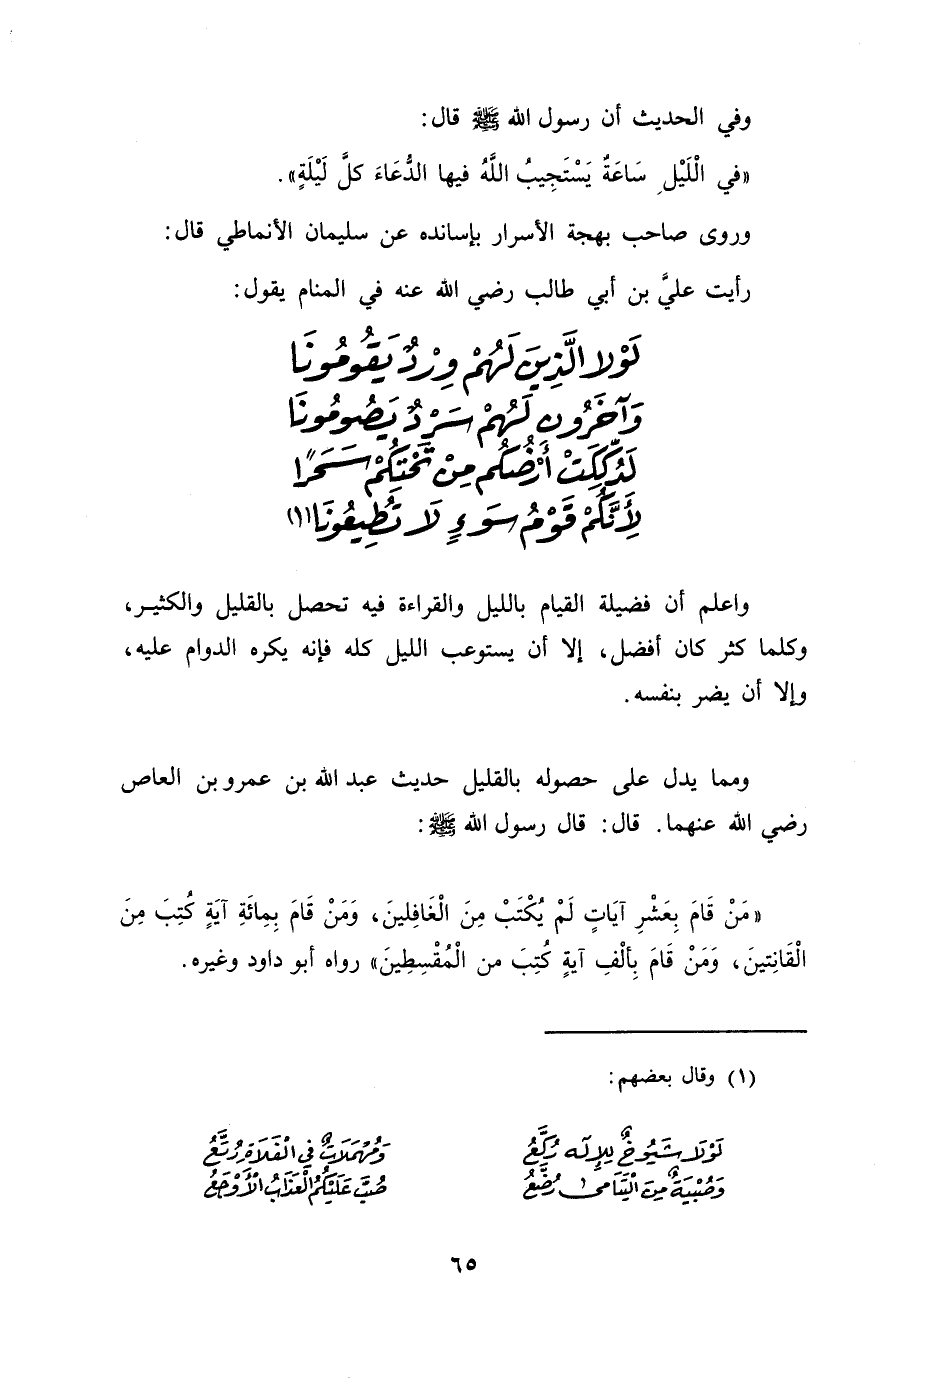 وفي الحديث أن رسول الله ﷺ قال:
«في الْلَيْلِ سَاعَةٌ يَسْتَجِيبُ اللَّهُ فيها الدُّعَاءَ كلَّ لَيْلَةٍ».
وروى صاحب بهجة الأسرار بإسانده عن سليمان الأنماطي قال:
رأيت عليَّ بن أبي طالب رضي الله عنه في المنام يقول:
لَوْلا الَّذِينَ لَهُمْ وِرْدٌ يَقُومُونَا
وَآخَرُون لَهُمْ سَرْدٌ يَصُومُونَا
لَدُكْدِكَتْ أَرْضُكُم مِنْ تَحْتِكُمْ سَحَرًا
لِأَنَّكُمْ قَوْمُ سَوءٍ لَا تُطِيعُونَا(١)
واعلم أن فضيلة القيام بالليل والقراءة فيه تحصل بالقليل والكثير،
وكلما كثر كان أفضل، إلا أن يستوعب الليل كله فإنه يكره الدوام عليه،
وإلا أن يضر بنفسه.
ومما يدل على حصوله بالقليل حديث عبد الله بن عمرو بن العاص
رضي الله عنهما. قال: قال رسول الله ﷺ:
«مَنْ قَامَ بِعَشْرِ آيَاتٍ لَمْ يُكْتَبْ مِنَ الْغَافِلينَ، وَمَنْ قَامَ بِمائَةِ آيَةٍ كُتِبَ مِنَ
الْقَانِتينَ، وَمَنْ قَامَ بِأَلْفِ آيةٍ كُتِبَ من الْمُقْسِطِينَ» رواه أبو داود وغيره.
(١) وقال بعضهم:
لَوْلَا شُيُوخٌ لِلإِلَه رُكَّعُ وَمُهْمَلَاتٌ فِي الْفَلَاةِ رُتَّعُ
وَصُبْيَةٌ مِنَ الْيَتَامى رُضَّعُ صُبَّ عَلَيْكُمُ الْعَذَابُ الْأَوْجَعُ
٦٥